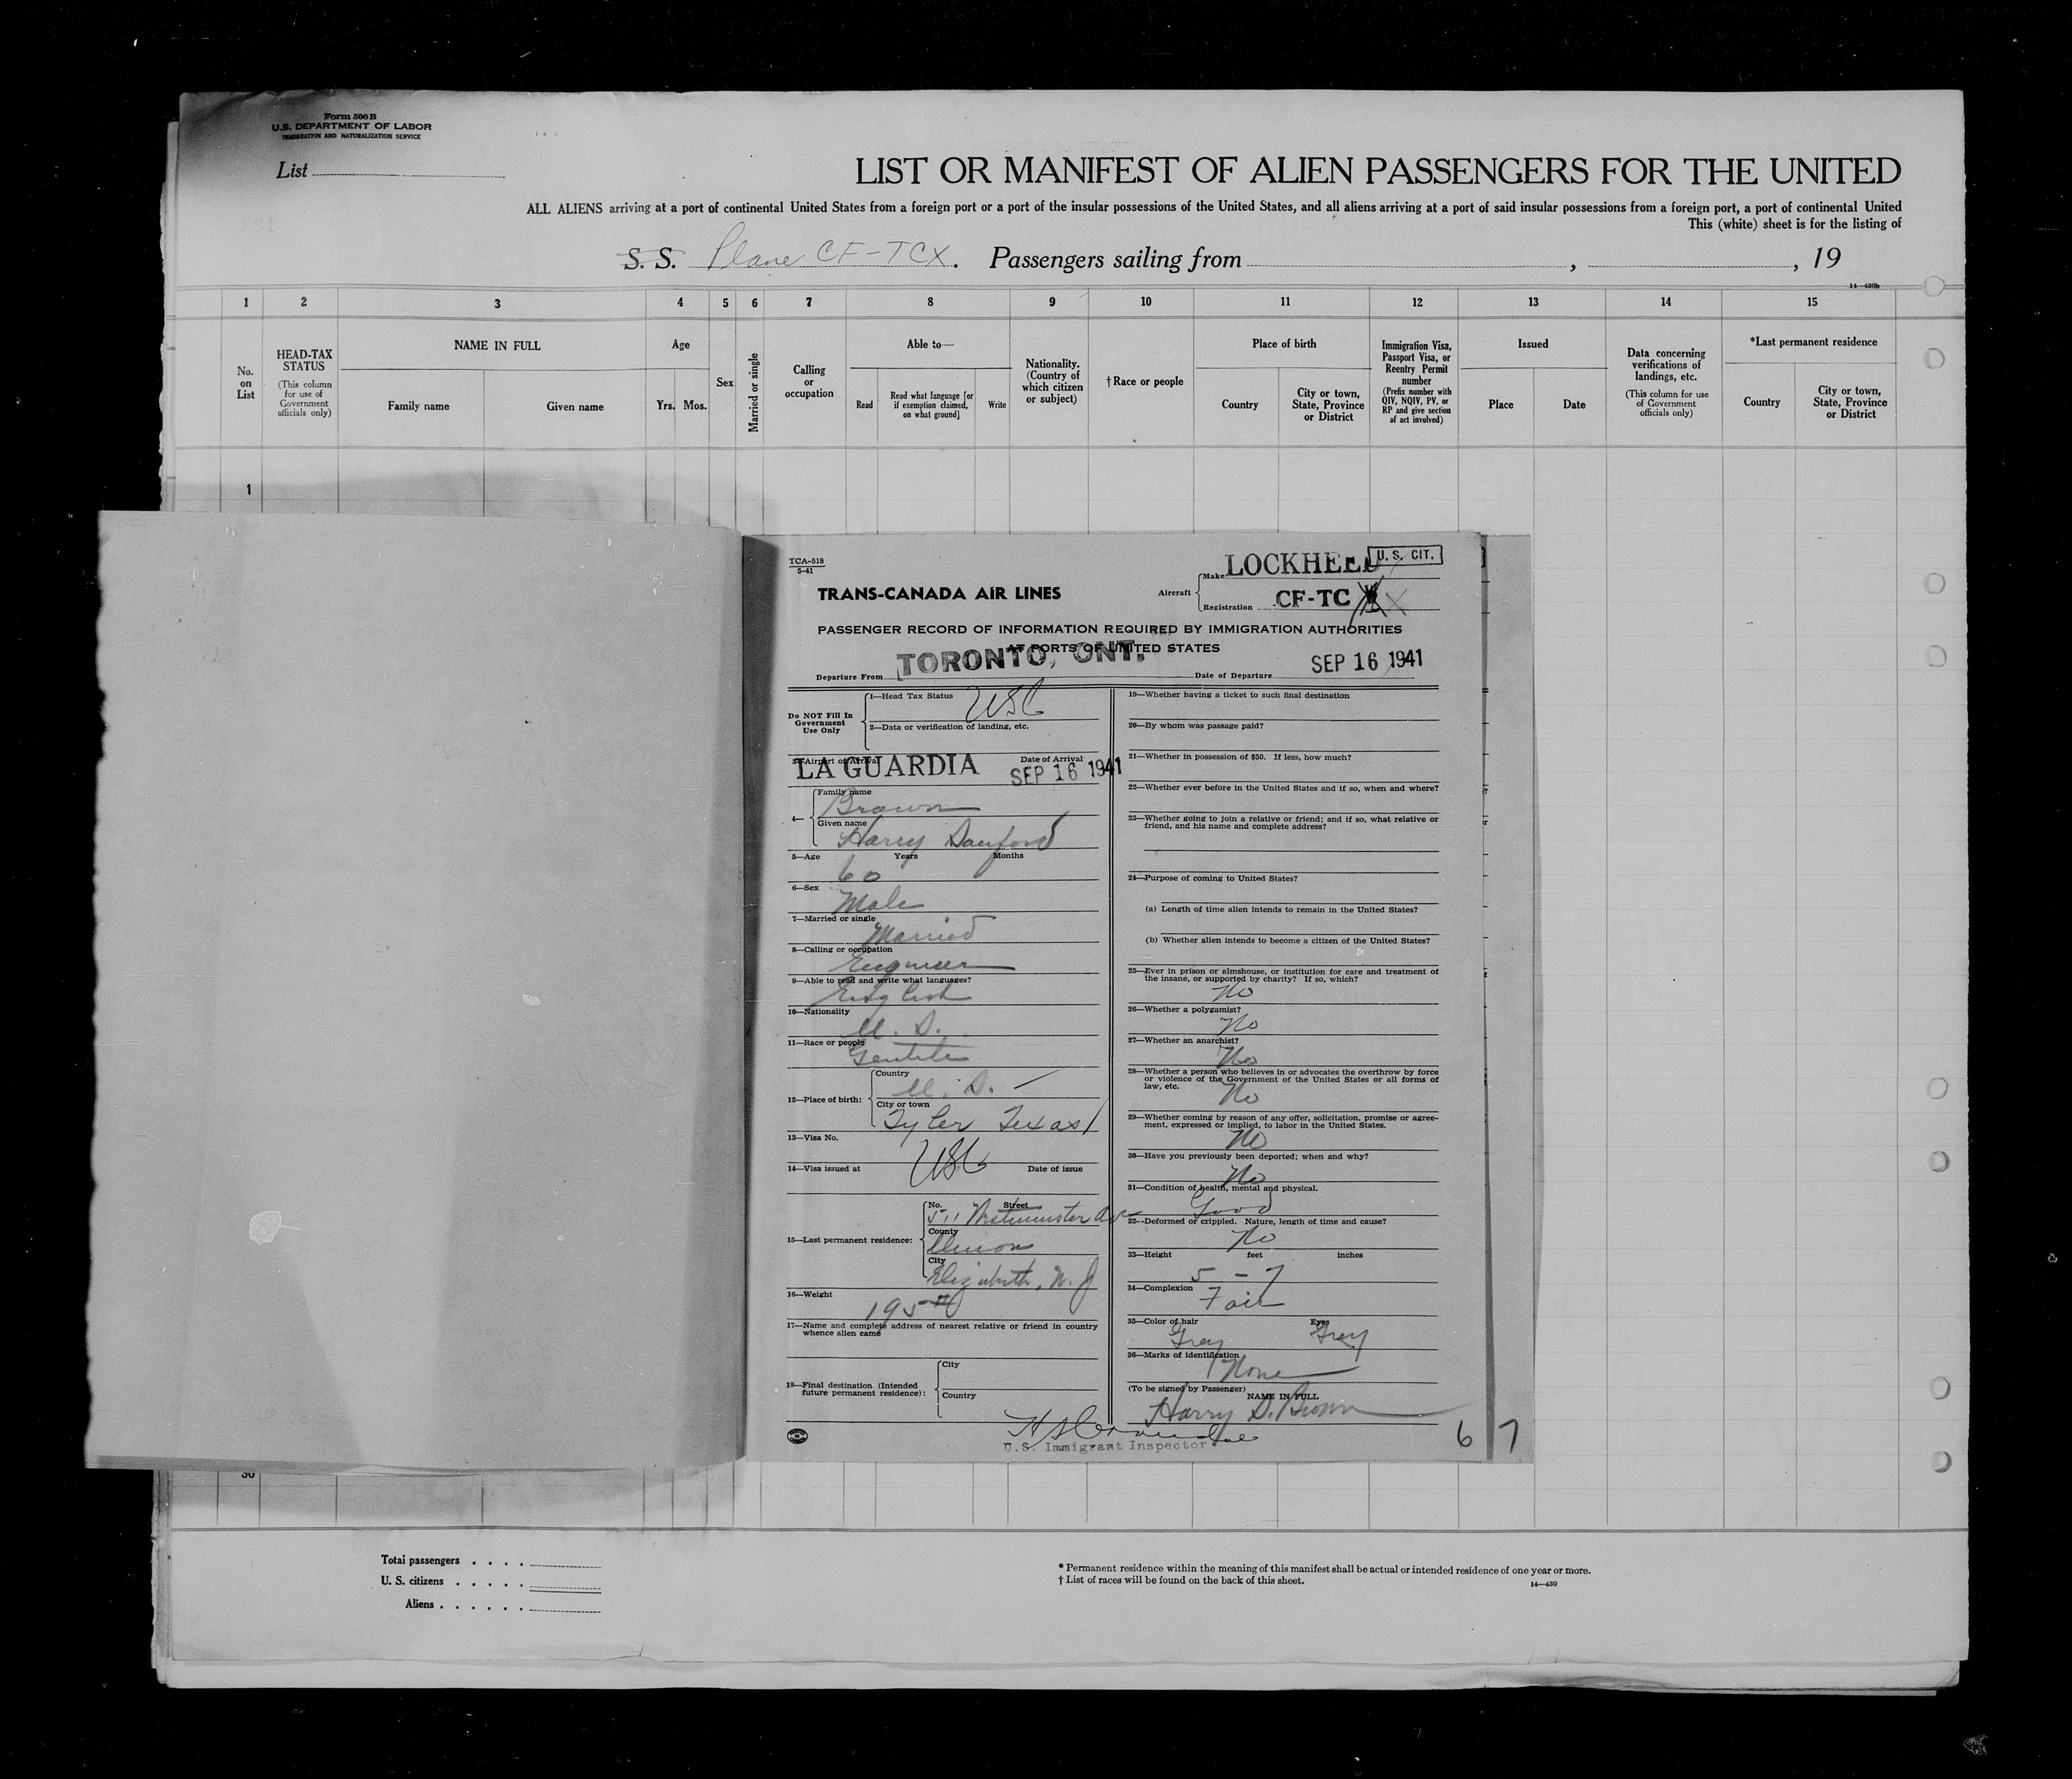 Form 500 B
U.S. DEPARTMENT OF LABOR
IMMIGRATION AND NATURALIZATION SERVICE
List
LIST OR MANIFEST OF ALIEN PASSENGERS FOR THE UNITED
ALL ALIENS arriving at a port of continental United States from a foreign port or a port of the insular possessions of the United States, and all aliens arriving at a port of said insular possessions from a foreign port, a port of continental United
This (white) sheet is for the listing of
S. S. Plane CF-TCX. Passengers sailing from , , 19
14—430b
1 2 3 4 5 6 7 8 9 10 11 12 13 14 15
No. on List
HEAD-TAX STATUS
(This column for use of Government officials only)
NAME IN FULL
Family name
Given name
Age
Yrs. Mos.
Sex
Married or single
Calling or occupation
Able to—
Read
Read what language [or if exemption claimed, on what ground]
Write
Nationality. (Country of which citizen or subject)
†Race or people
Place of birth
Country
City or town, State, Province or District
Immigration Visa, Passport Visa, or Reentry Permit number
(Prefix number with QIV, NQIV, PV, or RP and give section of act involved)
Issued
Place
Date
Data concerning verifications of landings, etc.
(This column for use of Government officials only)
*Last permanent residence
Country
City or town, State, Province or District
1
TCA-518
5-41
TRANS-CANADA AIR LINES
Aircraft
Make LOCKHEED
U. S. CIT.
Registration CF-TC X
PASSENGER RECORD OF INFORMATION REQUIRED BY IMMIGRATION AUTHORITIES
AT PORTS OF UNITED STATES
Departure From TORONTO, ONT.
Date of Departure SEP 16 1941
Do NOT Fill In Government Use Only
1—Head Tax Status USC
2—Data or verification of landing, etc.
3—Airport of Arrival LA GUARDIA
Date of Arrival SEP 16 1941
4—
Family name Brown
Given name Harry Danford
5—Age Years Months
60
6—Sex
Male
7—Married or single
Married
8—Calling or occupation
Engineer
9—Able to read and write what languages?
English
10—Nationality
U. S.
11—Race or people
Gentile
12—Place of birth:
Country
U. S.
City or town
Tyler Texas
13—Visa No.
USC
14—Visa issued at Date of issue
15—Last permanent residence:
No. Street
511 Westminster Ave
County
Union
City
Elizabeth, N. J
16—Weight
195 #
17—Name and complete address of nearest relative or friend in country whence alien came
18—Final destination (Intended future permanent residence):
City
Country
19—Whether having a ticket to such final destination
20—By whom was passage paid?
21—Whether in possession of $50. If less, how much?
22—Whether ever before in the United States and if so, when and where?
23—Whether going to join a relative or friend; and if so, what relative or friend, and his name and complete address?
24—Purpose of coming to United States?
(a) Length of time alien intends to remain in the United States?
(b) Whether alien intends to become a citizen of the United States?
25—Ever in prison or almshouse, or institution for care and treatment of the insane, or supported by charity? If so, which?
No
26—Whether a polygamist?
No
27—Whether an anarchist?
No
28—Whether a person who believes in or advocates the overthrow by force or violence of the Government of the United States or all forms of law, etc.
No
29—Whether coming by reason of any offer, solicitation, promise or agreement, expressed or implied, to labor in the United States.
No
30—Have you previously been deported; when and why?
No
31—Condition of health, mental and physical.
Good
32—Deformed or crippled. Nature, length of time and cause?
No
33—Height feet inches
5 - 7
34—Complexion
Fair
35—Color of hair Eyes
Gray Gray
36—Marks of identification
None
(To be signed by Passenger) NAME IN FULL
Harry D. Brown
U.S. Immigrant Inspector
6 7
30
Total passengers . . . .
U. S. citizens . . . . .
Aliens . . . . . .
* Permanent residence within the meaning of this manifest shall be actual or intended residence of one year or more.
† List of races will be found on the back of this sheet.
14—430